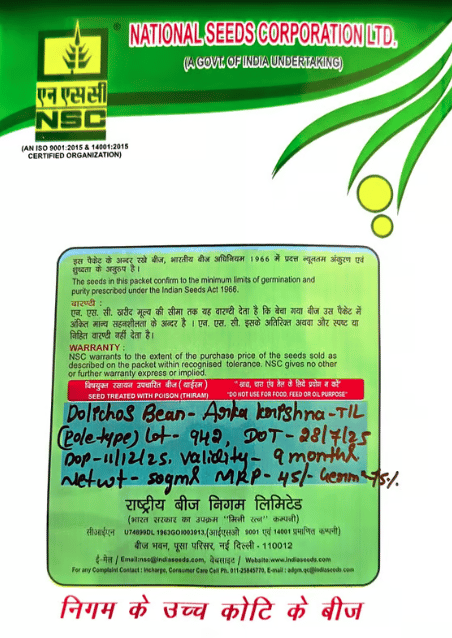 NATIONAL SEEDS CORPORATION LTD.
(A GOVT. OF INDIA UNDERTAKING)
एन एस सी
NSC
(AN ISO 9001:2015 & 14001:2015
CERTIFIED ORGANIZATION)
इस पैकेट के अन्दर रखे बीज, भारतीय बीज अधिनियम 1966 में प्रदत्त न्यूनतम अंकुरण एवं
शुध्दता के अनुरुप है।
The seeds in this packet confirm to the minimum limits of germination and
purity prescribed under the Indian Seeds Act 1966.
वारण्टी :
एन. एस. सी. खरीद मूल्य की सीमा तक यह वारण्टी देता है कि बेचा गया बीज उस पैकेट में
अंकित मान्य सहनशीलता के अन्दर है। एन. एस. सी. इसके अतिरिक्त अथवा और स्पष्ट या
निहित वारण्टी नहीं देता है।
WARRANTY :
NSC warrants to the extent of the purchase price of the seeds sold as
described on the packet within recognised tolerance. NSC gives no other
or further warranty express or implied.
विषयुक्त रसायन उपचारित बीज (थाईरम) "खाद्य, चारा एंव तेल के लिये प्रयोग न करें"
SEED TREATED WITH POISON (THIRAM) "DO NOT USE FOR FOOD, FEED OR OIL PURPOSE"
Dolichos Bean - Arka Krishna - T/L
(Pole type) Lot - 942, DOT - 28/7/25
DOP - 11/12/25, Validity - 9 months
Net wt - 50gms MRP - 45/- Germn 75%
राष्ट्रीय बीज निगम लिमिटेड
(भारत सरकार का उपक्रम "मिनी रत्न" कम्पनी)
सीआईएन U74899DL1963GOI003913, (आईएसओ 9001 एवं 14001 प्रमाणित कम्पनी)
बीज भवन, पूसा परिसर, नई दिल्ली - 110012
ई-मेल / Email:nsc@indiaseeds.com, वेबसाइट / Website:www.indiaseeds.com
For any Complaint Contact : Incharge, Consumer Care Cell Ph. 011-25845770, E-mail : adpm.qc@indiaseeds.com
निगम के उच्च कोटि के बीज